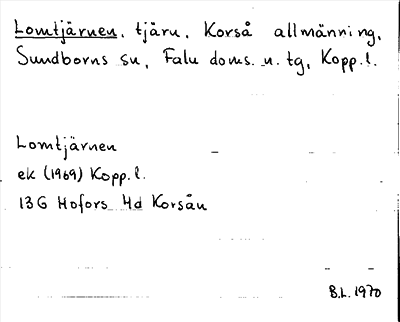 Lomtjärnen, tjärn, Korså allmänning,
Sundborns sn, Falu doms. o. tg, Kopp.l.
Lomtjärnen
ek (1969) Kopp.l.
13G Hofors 4d Korsån
B.L. 1970